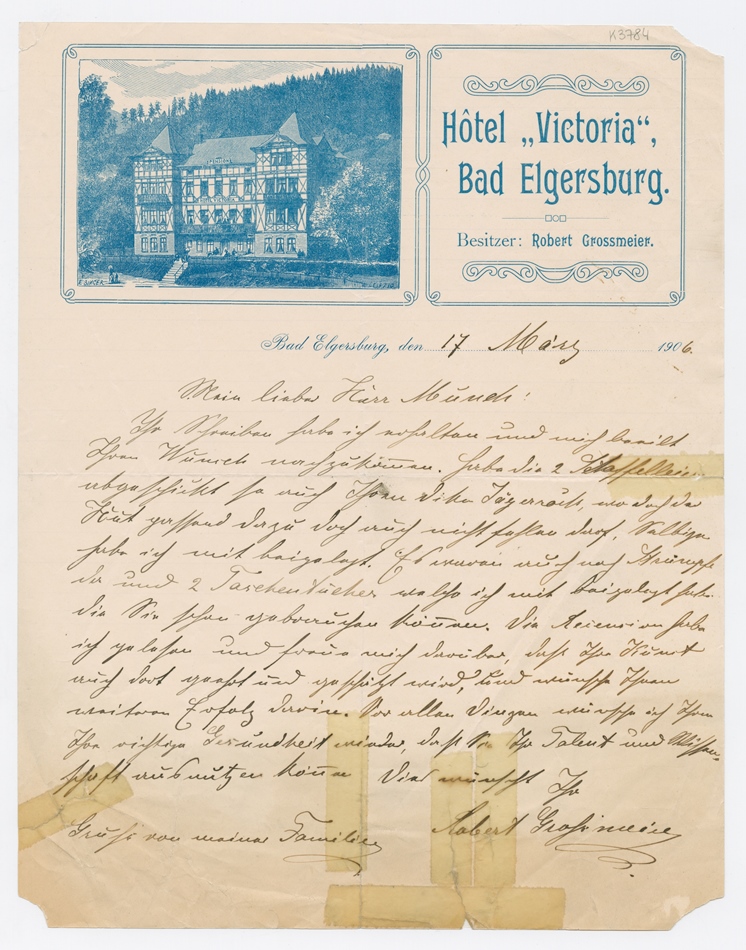 K3784
Hôtel „Victoria“,
Bad Elgersburg.
Besitzer: Robert Grossmeier.
Bad Elgersburg, den 17 März 1906.
Mein lieber Herr Munch!
Ihr Schreiben habe ich erhalten und mich beeilt
Ihren Wunsch nachzukommen. Habe die 2
abgeschickt so auch Ihren Jägerrock, wo doch der
Hut passend dazu doch auch nicht fehlen darf, Selbigen
habe ich mit beigelegt. Es waren auch noch Strümpfe
da und 2 Taschentücher welche ich mit beigelegt habe
die Sie schon gebrauchen können. Die Recension habe
ich gelesen und freue mich darüber, daß Ihre Kunst
auch dort geehrt und geschätzt wird, und wünsche Ihnen
weiteren Erfolg darin. Vor allen Dingen wünsche ich Ihnen
Ihre richtige Gesundheit wieder, daß Sie Ihr Talent und Wissen-
schaft ausnutzen können Dies wünscht Ihr
Gruß von meiner Familie
Robert Großmeier